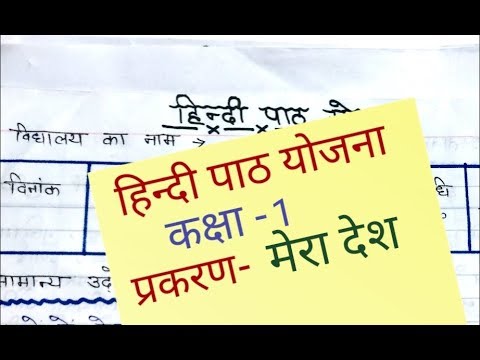 हिन्दी पाठ
विद्यालय का नाम →
दिनांक
हिन्दी पाठ योजना
कक्षा -1
प्रकरण- मेरा देश